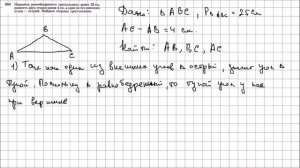 250 Периметр равнобедренного треугольника равен 25 см,
разность двух сторон равна 4 см, а один из его внешних
углов — острый. Найдите стороны треугольника.
Дано: Δ ABC, P_ABC = 25см
AC - AB = 4 см
Найти: AB, BC, AC
B
A
C
1) Так как один из внешних углов острый, значит угол
тупой. Поскольку в равнобедренный то тупой угол у нас
при вершине